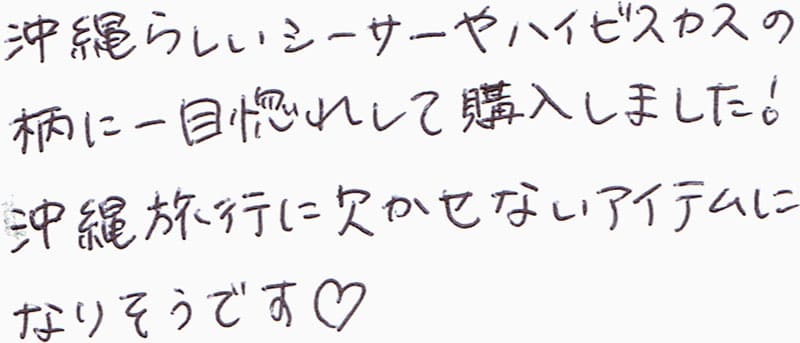 沖縄らしいシーサーやハイビスカスの
柄に一目惚れして購入しました!
沖縄旅行に欠かせないアイテムに
なりそうです♡